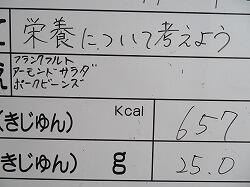 栄養について考えよう
フランクフルト
アーモンドサラダ
ポークビーンズ
(きじゅん) Kcal 657
きじゅん) g 25.0